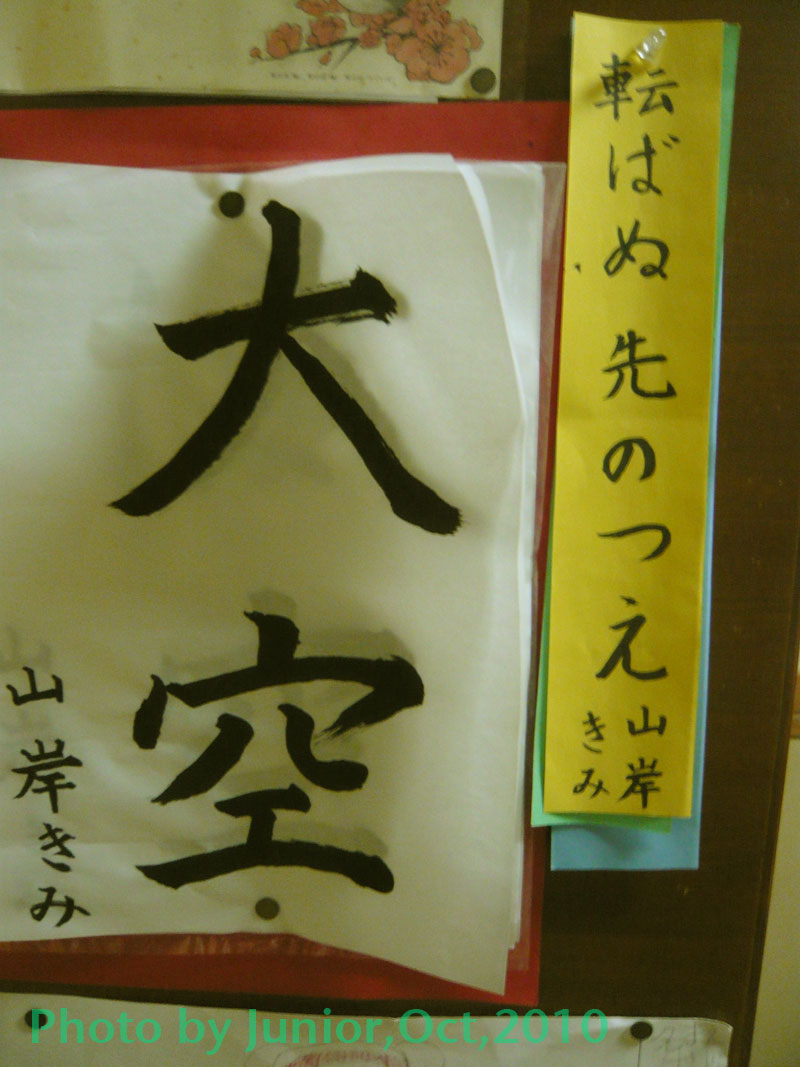 転ばぬ先のつえ
山岸
きみ
大空
山岸きみ
Photo by Junior,Oct,2010